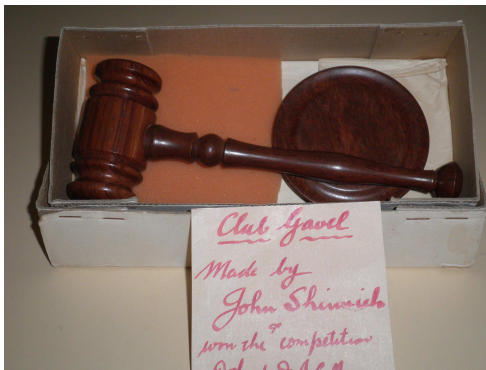 Club Gavel
Made by
John
&
won the competition